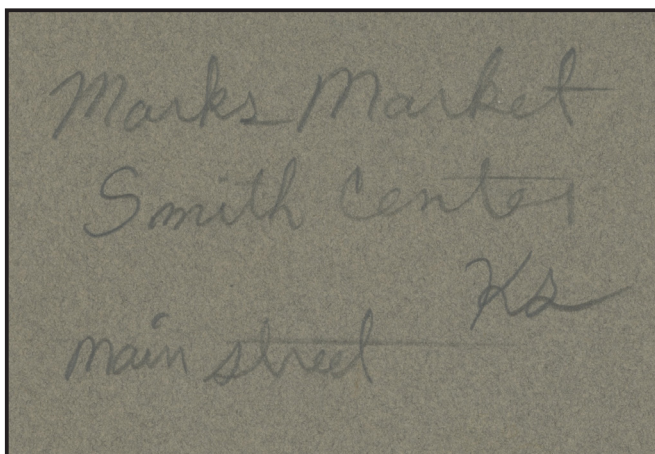 Marks Market
Smith Center
Ks
main street